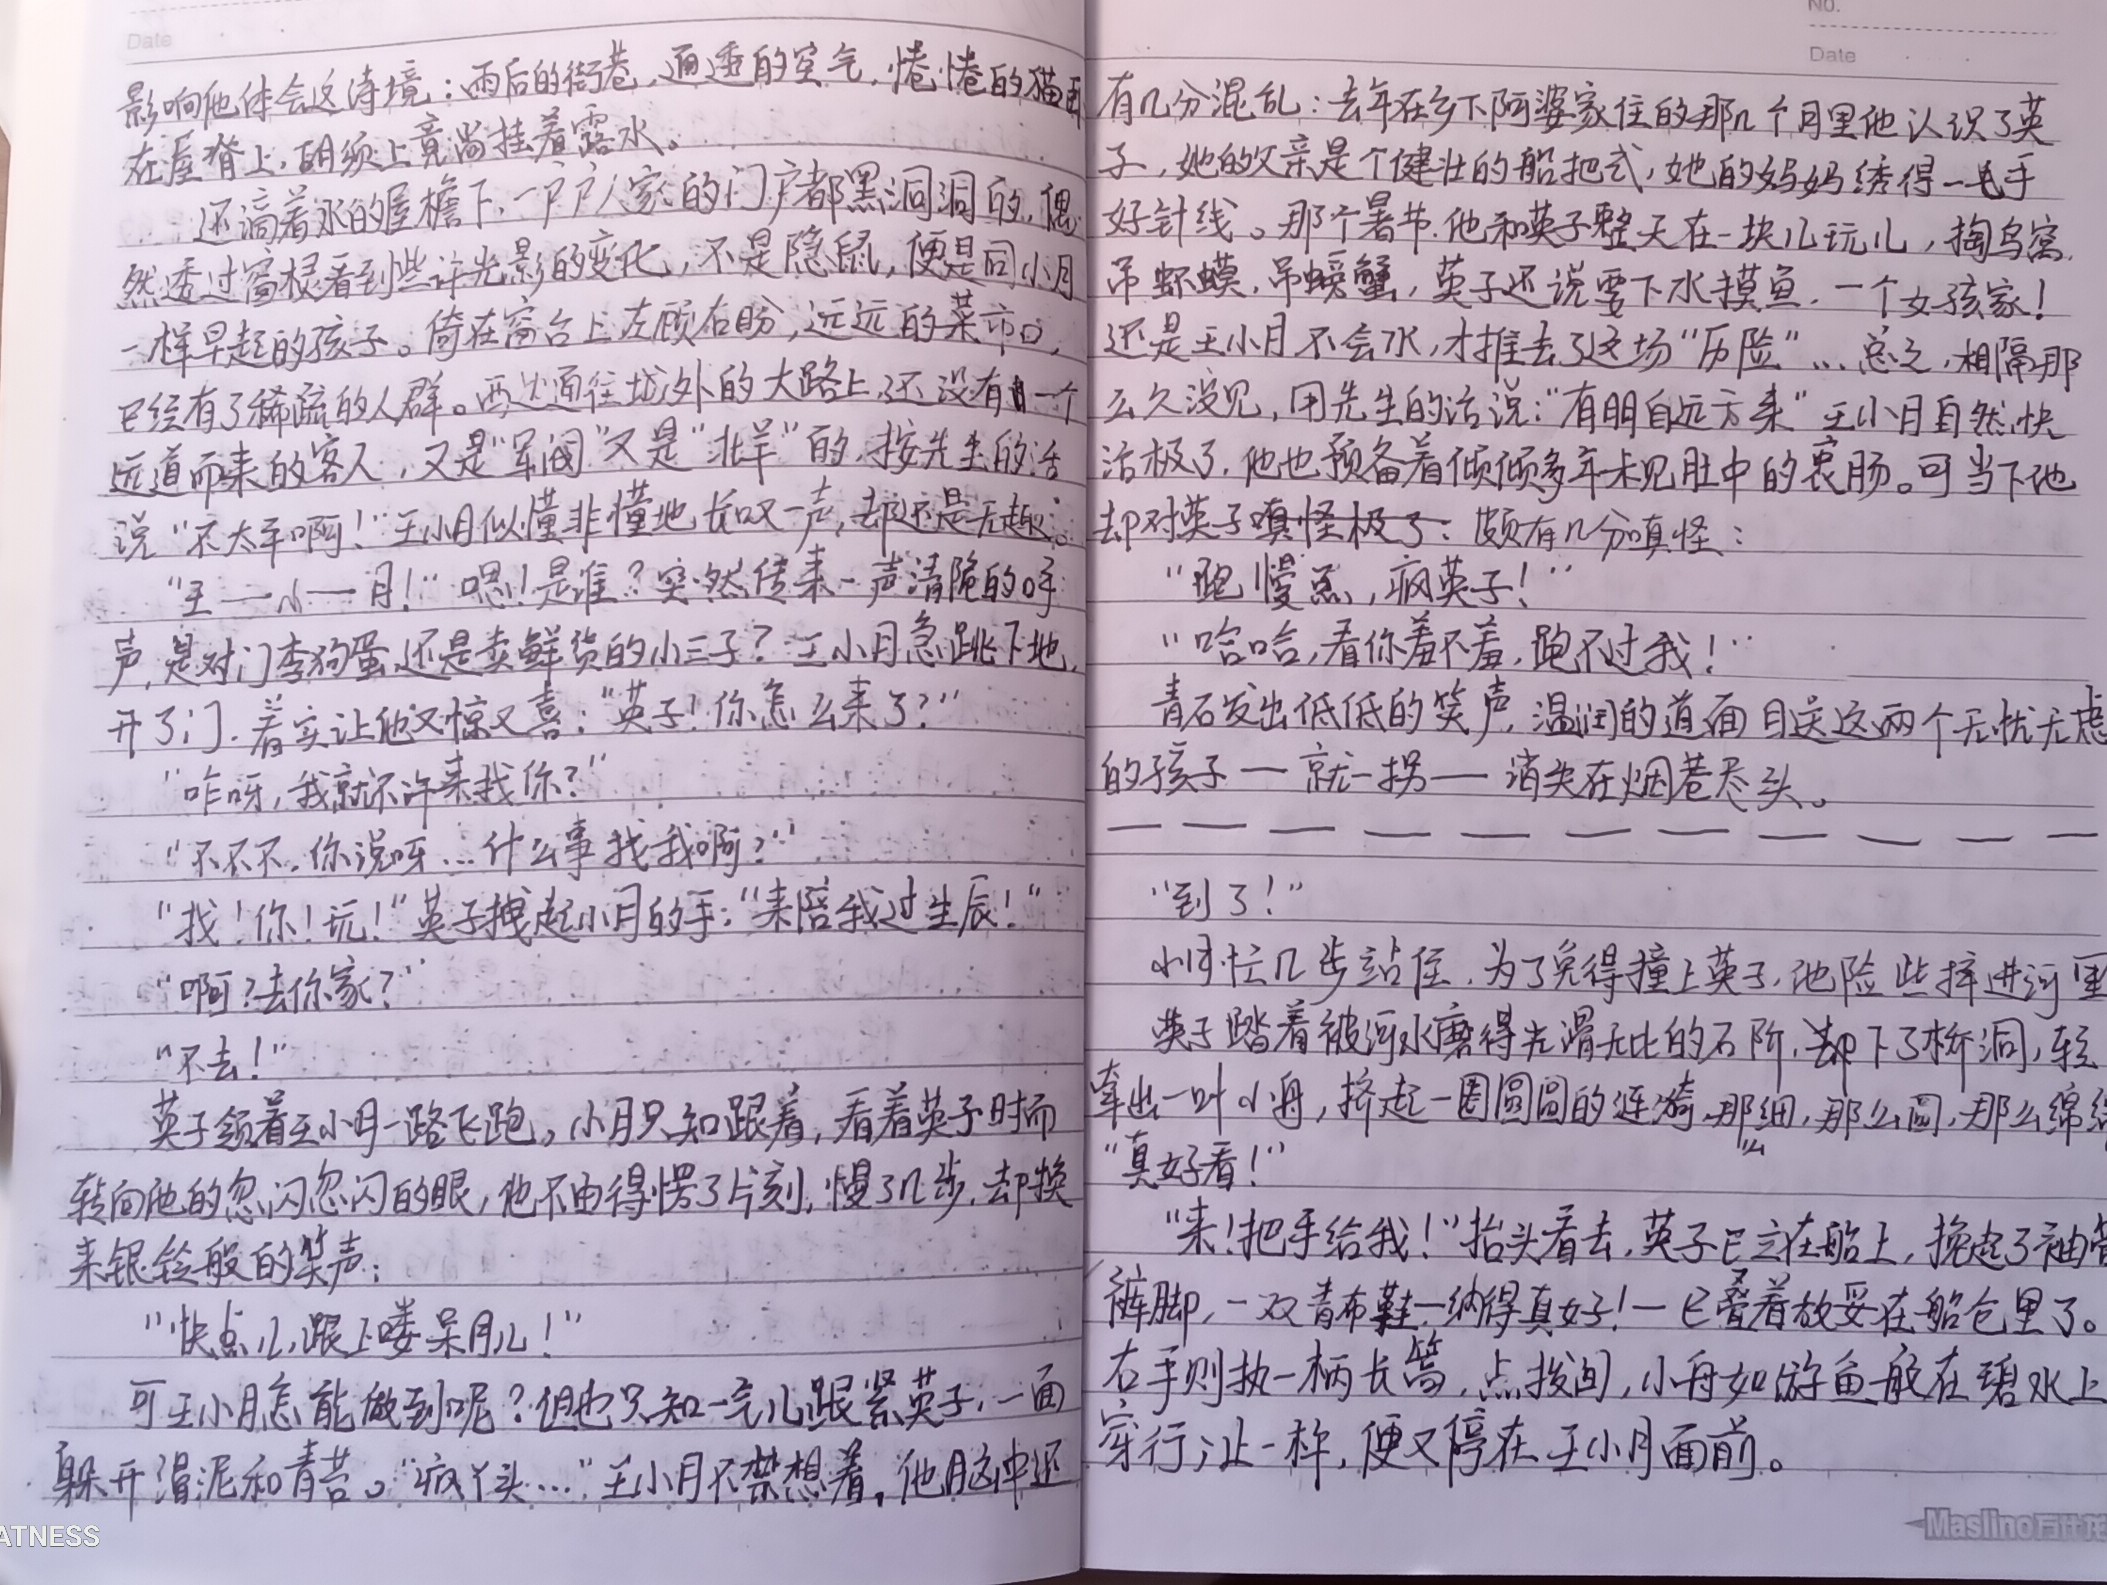 Date
影响他体会这诗境：雨后的街巷，通透的空气，惓惓的猫
在屋脊上，胡须上竟尚挂着露水。
还滴着水的屋檐下，一户户人家的门户都黑洞洞的，偶
然透过窗棂看到些许光影的变化，不是隐鼠，便是同小月
一样早起的孩子。倚在窗台上左顾右盼，远远的菜市口，
已经有了稀疏的人群。西边通往城外的大路上，还没有一个
远道而来的客人，又是"军阀"又是"北羊"的，按先生的话
说"不太平啊！"王小月似懂非懂地长叹一声，却还是无趣。
"王——小——月！"嗯！是谁？突然传来一声清脆的呼
声，是对门李狗蛋还是卖鲜货的小三子？王小月急跳下地，
开了门，着实让他又惊又喜："英子！你怎么来了？"
"咋呀，我就不许来找你？"
"不不不，你说呀…什么事找我啊？"
"找！你！玩！"英子拽起小月的手："来陪我过生辰！"
"啊？去你家？"
"不去！"
英子领着王小月一路飞跑。小月只知跟着，看着英子时而
转向他的忽闪忽闪的眼，他不由得愣了片刻，慢了几步，却换
来银铃般的笑声：
"快点儿，跟上喽呆月儿！"
可王小月怎能做到呢？但也只知一气儿跟紧英子，一面
躲开滑泥和青苔。"疯丫头…"王小月不禁想着，他脑中还
ATNESS
No.
Date
有几分混乱：去年在乡下阿婆家住的那几个月里他认识了英
子，她的父亲是个健壮的船把式，她的妈妈绣得一毛手
好针线。那个暑节，他和英子整天在一块儿玩儿，掏鸟窝，
吊虾蟆，吊螃蟹，英子还说要下水摸鱼，一个女孩家！
还是王小月不会水，才推去了这场"历险"…总之，相隔那
么久没见，用先生的话说："有朋自远方来"王小月自然快
活极了，他也预备着倾倾多年未见肚中的衷肠。可当下他
却对英子嗔怪极了：颇有几分嗔怪：
"跑慢点，疯英子！"
"哈哈，看你羞不羞，跑不过我！"
青石发出低低的笑声，温润的道面目送这两个无忧无虑
的孩子——就一拐——消失在烟巷尽头。
"到了！"
小月忙几步站住，为了免得撞上英子，他险些摔进河里
英子踏着被河水磨得光滑无比的石阶，却下了桥洞，轻
牵出一叶小舟，挤起一圈圆圆的涟漪，那么细，那么圆，那么绵
"真好看！"
"来！把手给我！"抬头看去，英子已立在船上，挽起了袖管
裤脚，一双青布鞋—纳得真好！—已叠着放妥在船仓里了。
右手则执一柄长篙，点拨间，小舟如游鱼般在碧水上
穿行；让一样，便又停在王小月面前。
Maslino万仕龙